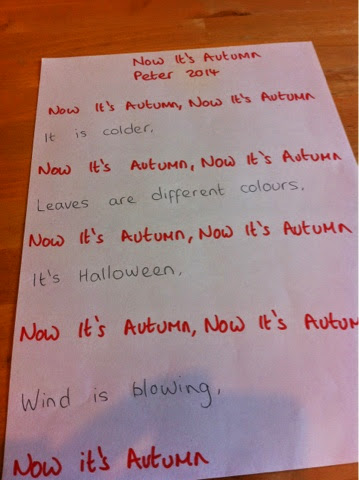 Now It's Autumn
Peter 2014
Now It's Autumn, Now It's Autumn
It is colder.
Now It's Autumn, Now It's Autumn
Leaves are different colours.
Now It's Autumn, Now It's Autumn
It's Halloween.
Now It's Autumn, Now It's Autum
Wind is blowing.
Now it's Autumn